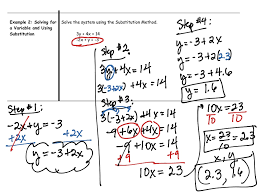 Example 2: Solving for a Variable and Using Substitution
Solve the system using the Substitution Method.
3y + 4x = 14
-2x + y = -3
Step #1:
-2x + y = -3
+2x +2x
y = -3+2x
Step #2:
3y + 4x = 14
3(-3+2x)+4x = 14
Step #3:
3(-3+2x)+4x = 14
-9+6x+4x = 14
-9 + 10x = 14
+9 +9
10x = 23
Step #4:
y = -3+2x
y = -3+2(2.3)
y = -3+4.6
y = 1.6
10x = 23
10 10
x = 23/10 = 2.3
x, y
(2.3, 1.6)